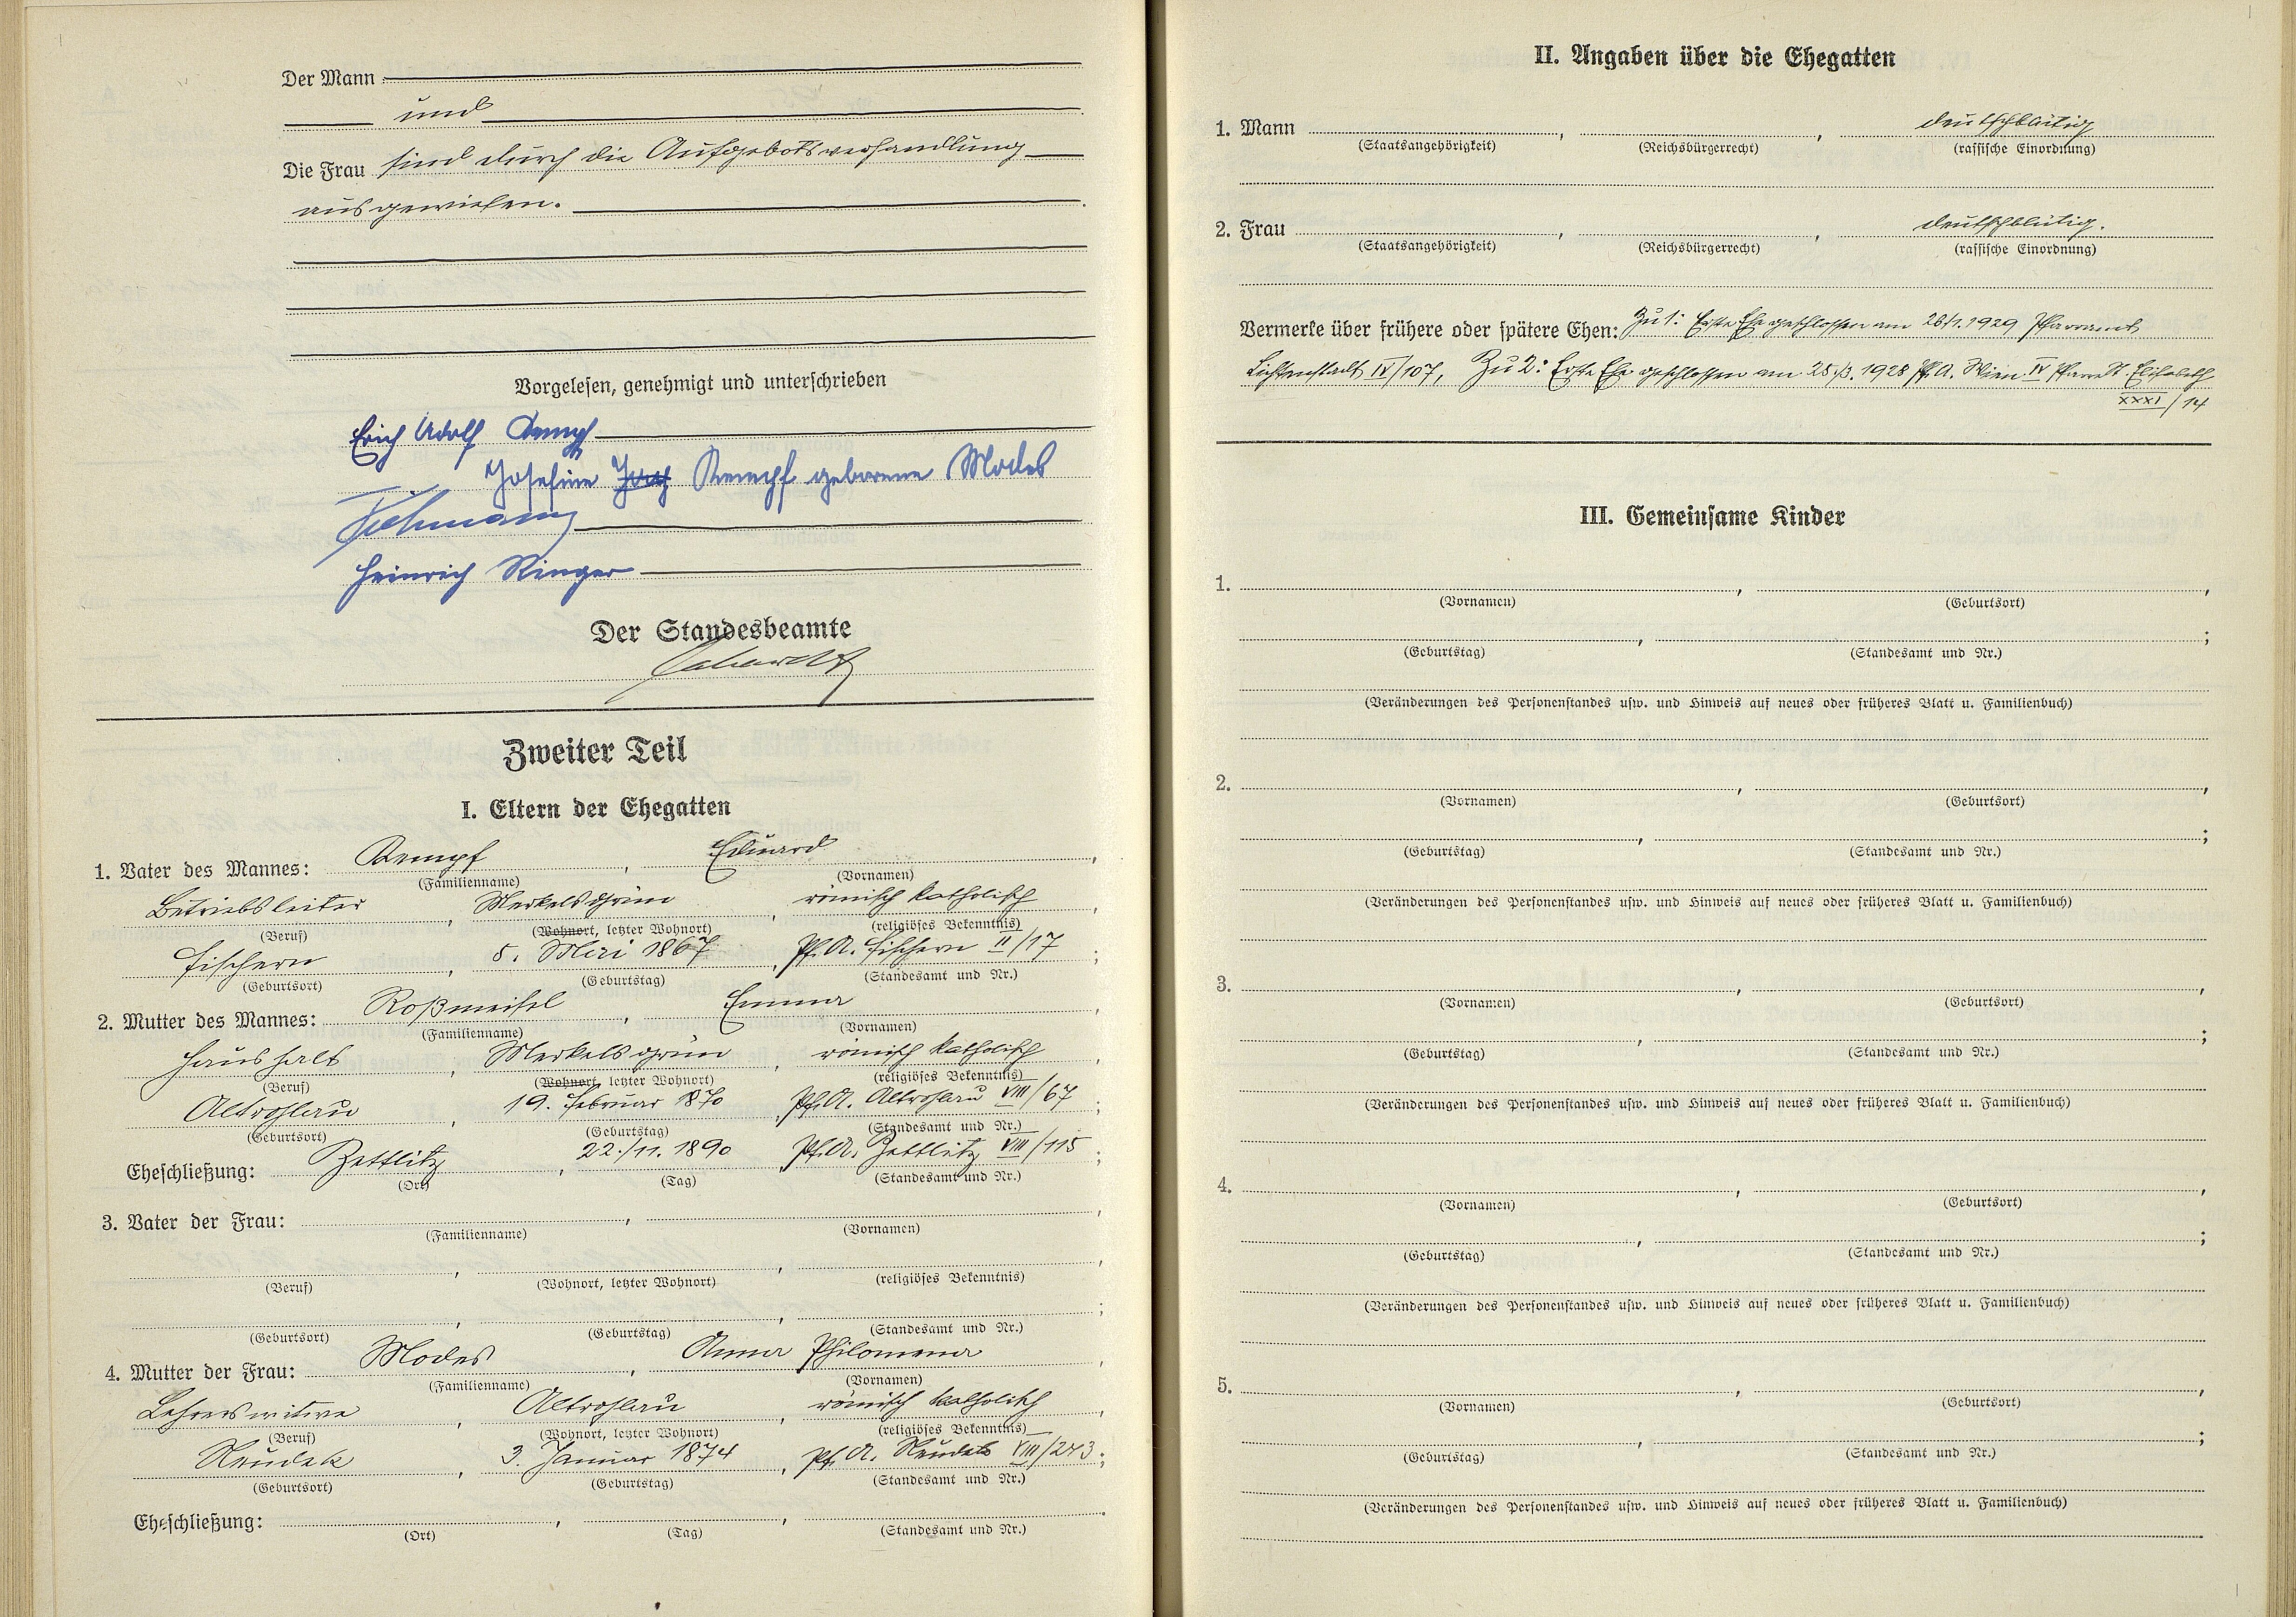 Der Mann
und
Die Frau sind durch die Aufgebotsverhandlung
ausgewiesen.
Vorgelesen, genehmigt und unterschrieben
Erich Adolf Kempf
Josefine Kempf geborene Modes
Heinrich Ringer
Der Standesbeamte
Zweiter Teil
I. Eltern der Ehegatten
1. Vater des Mannes: Kempf, Eduard,
(Familienname) (Vornamen)
Betriebsleiter, Merkelsgrün, römisch katholisch,
(Beruf) (Wohnort, letzter Wohnort) (religiöses Bekenntnis)
Fischern, 5. Mai 1867, Pf. A. Fischern II/17;
(Geburtsort) (Geburtstag) (Standesamt und Nr.)
2. Mutter des Mannes: Roßmeisel, Emma,
(Familienname) (Vornamen)
Haushalt, Merkelsgrün, römisch katholisch,
(Beruf) (Wohnort, letzter Wohnort) (religiöses Bekenntnis)
Altrohlau, 19. Februar 1870, Pf. A. Altrohlau VIII/67;
(Geburtsort) (Geburtstag) (Standesamt und Nr.)
Eheschließung: Zettlitz, 22./11. 1890, Pf. A. Zettlitz VIII/115;
(Ort) (Tag) (Standesamt und Nr.)
3. Vater der Frau: , ,
(Familienname) (Vornamen)
, , ,
(Beruf) (Wohnort, letzter Wohnort) (religiöses Bekenntnis)
, , ;
(Geburtsort) (Geburtstag) (Standesamt und Nr.)
4. Mutter der Frau: Modes, Anna Philomena,
(Familienname) (Vornamen)
Lehrerswitwe, Altrohlau, römisch katholisch,
(Beruf) (Wohnort, letzter Wohnort) (religiöses Bekenntnis)
Neudek, 3. Januar 1874, Pf. A. Neudek VIII/243;
(Geburtsort) (Geburtstag) (Standesamt und Nr.)
Eheschließung: , , .
(Ort) (Tag) (Standesamt und Nr.)
II. Angaben über die Ehegatten
1. Mann , , deutschblütig
(Staatsangehörigkeit) (Reichsbürgerrecht) (rassische Einordnung)
2. Frau , , deutschblütig.
(Staatsangehörigkeit) (Reichsbürgerrecht) (rassische Einordnung)
Vermerke über frühere oder spätere Ehen: Zu 1: Erste Ehe geschlossen am 26./1. 1929 Pfarramt
Lichtenstadt IV/107, Zu 2: Erste Ehe geschlossen am 25./3. 1928 Pf. A. Wien IV Pfarre St. Elisabeth
XXXI/14
III. Gemeinsame Kinder
1. , ,
(Vornamen) (Geburtsort)
, ;
(Geburtstag) (Standesamt und Nr.)
(Veränderungen des Personenstandes usw. und Hinweis auf neues oder früheres Blatt u. Familienbuch)
2. , ,
(Vornamen) (Geburtsort)
, ;
(Geburtstag) (Standesamt und Nr.)
(Veränderungen des Personenstandes usw. und Hinweis auf neues oder früheres Blatt u. Familienbuch)
3. , ,
(Vornamen) (Geburtsort)
, ;
(Geburtstag) (Standesamt und Nr.)
(Veränderungen des Personenstandes usw. und Hinweis auf neues oder früheres Blatt u. Familienbuch)
4. , ,
(Vornamen) (Geburtsort)
, ;
(Geburtstag) (Standesamt und Nr.)
(Veränderungen des Personenstandes usw. und Hinweis auf neues oder früheres Blatt u. Familienbuch)
5. , ,
(Vornamen) (Geburtsort)
, ;
(Geburtstag) (Standesamt und Nr.)
(Veränderungen des Personenstandes usw. und Hinweis auf neues oder früheres Blatt u. Familienbuch)